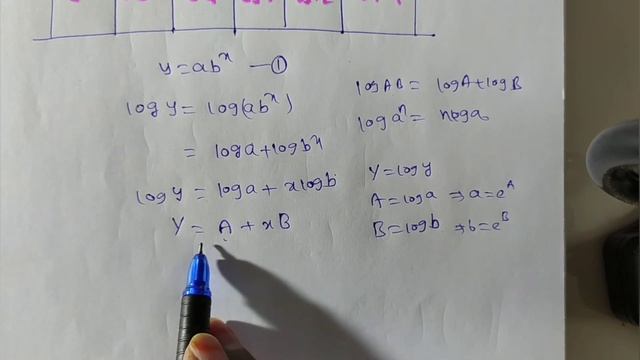 y = ab^x — ①
log y = log(ab^x)
= log a + log b^x
log y = log a + x log b
Y = A + xB
log AB = log A + log B
log a^n = n log a
Y = log y
A = log a ⇒ a = e^A
B = log b ⇒ b = e^B